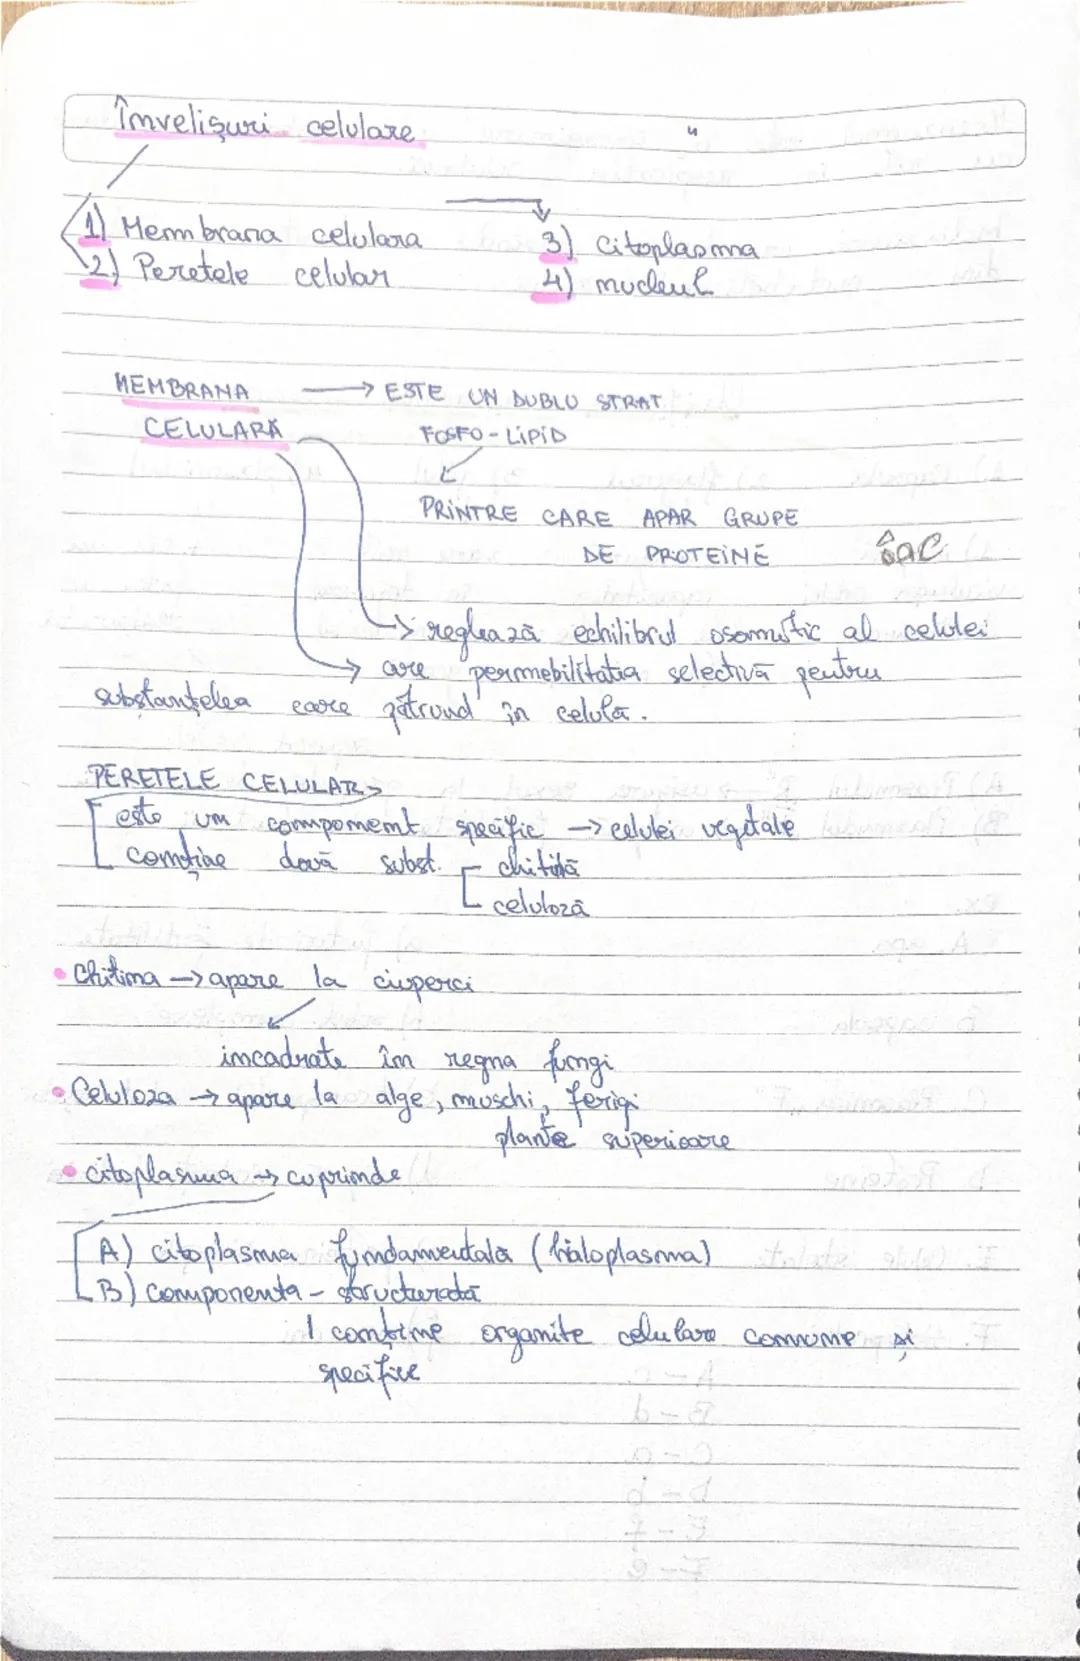 Învelișuri celulare
1) Membrana celulara
2) Peretele celular
3) Citoplasma
4) nucleul
MEMBRANA → ESTE UN DUBLU STRAT
CELULARĂ FOSFO-LIPID
PRINTRE CARE APAR GRUPE
DE PROTEINE
→ reglează echilibrul osomotic al celulei
→ are permebilitatia selectivă pentru
substanțelea care pătrund în celulă.
PERETELE CELULAR
este un component specific → celulei vegetale
conține două subst. chitină
celuloză
• Chitina → apare la ciuperci
incadrate în regna fungi
• Celuloza → apare la alge, muschi, ferigi
plante superioare
• citoplasma → cuprinde
A) citoplasma fundamentală (hialoplasma)
B) componenta - structurată
conține organite celulare comune și
specifice